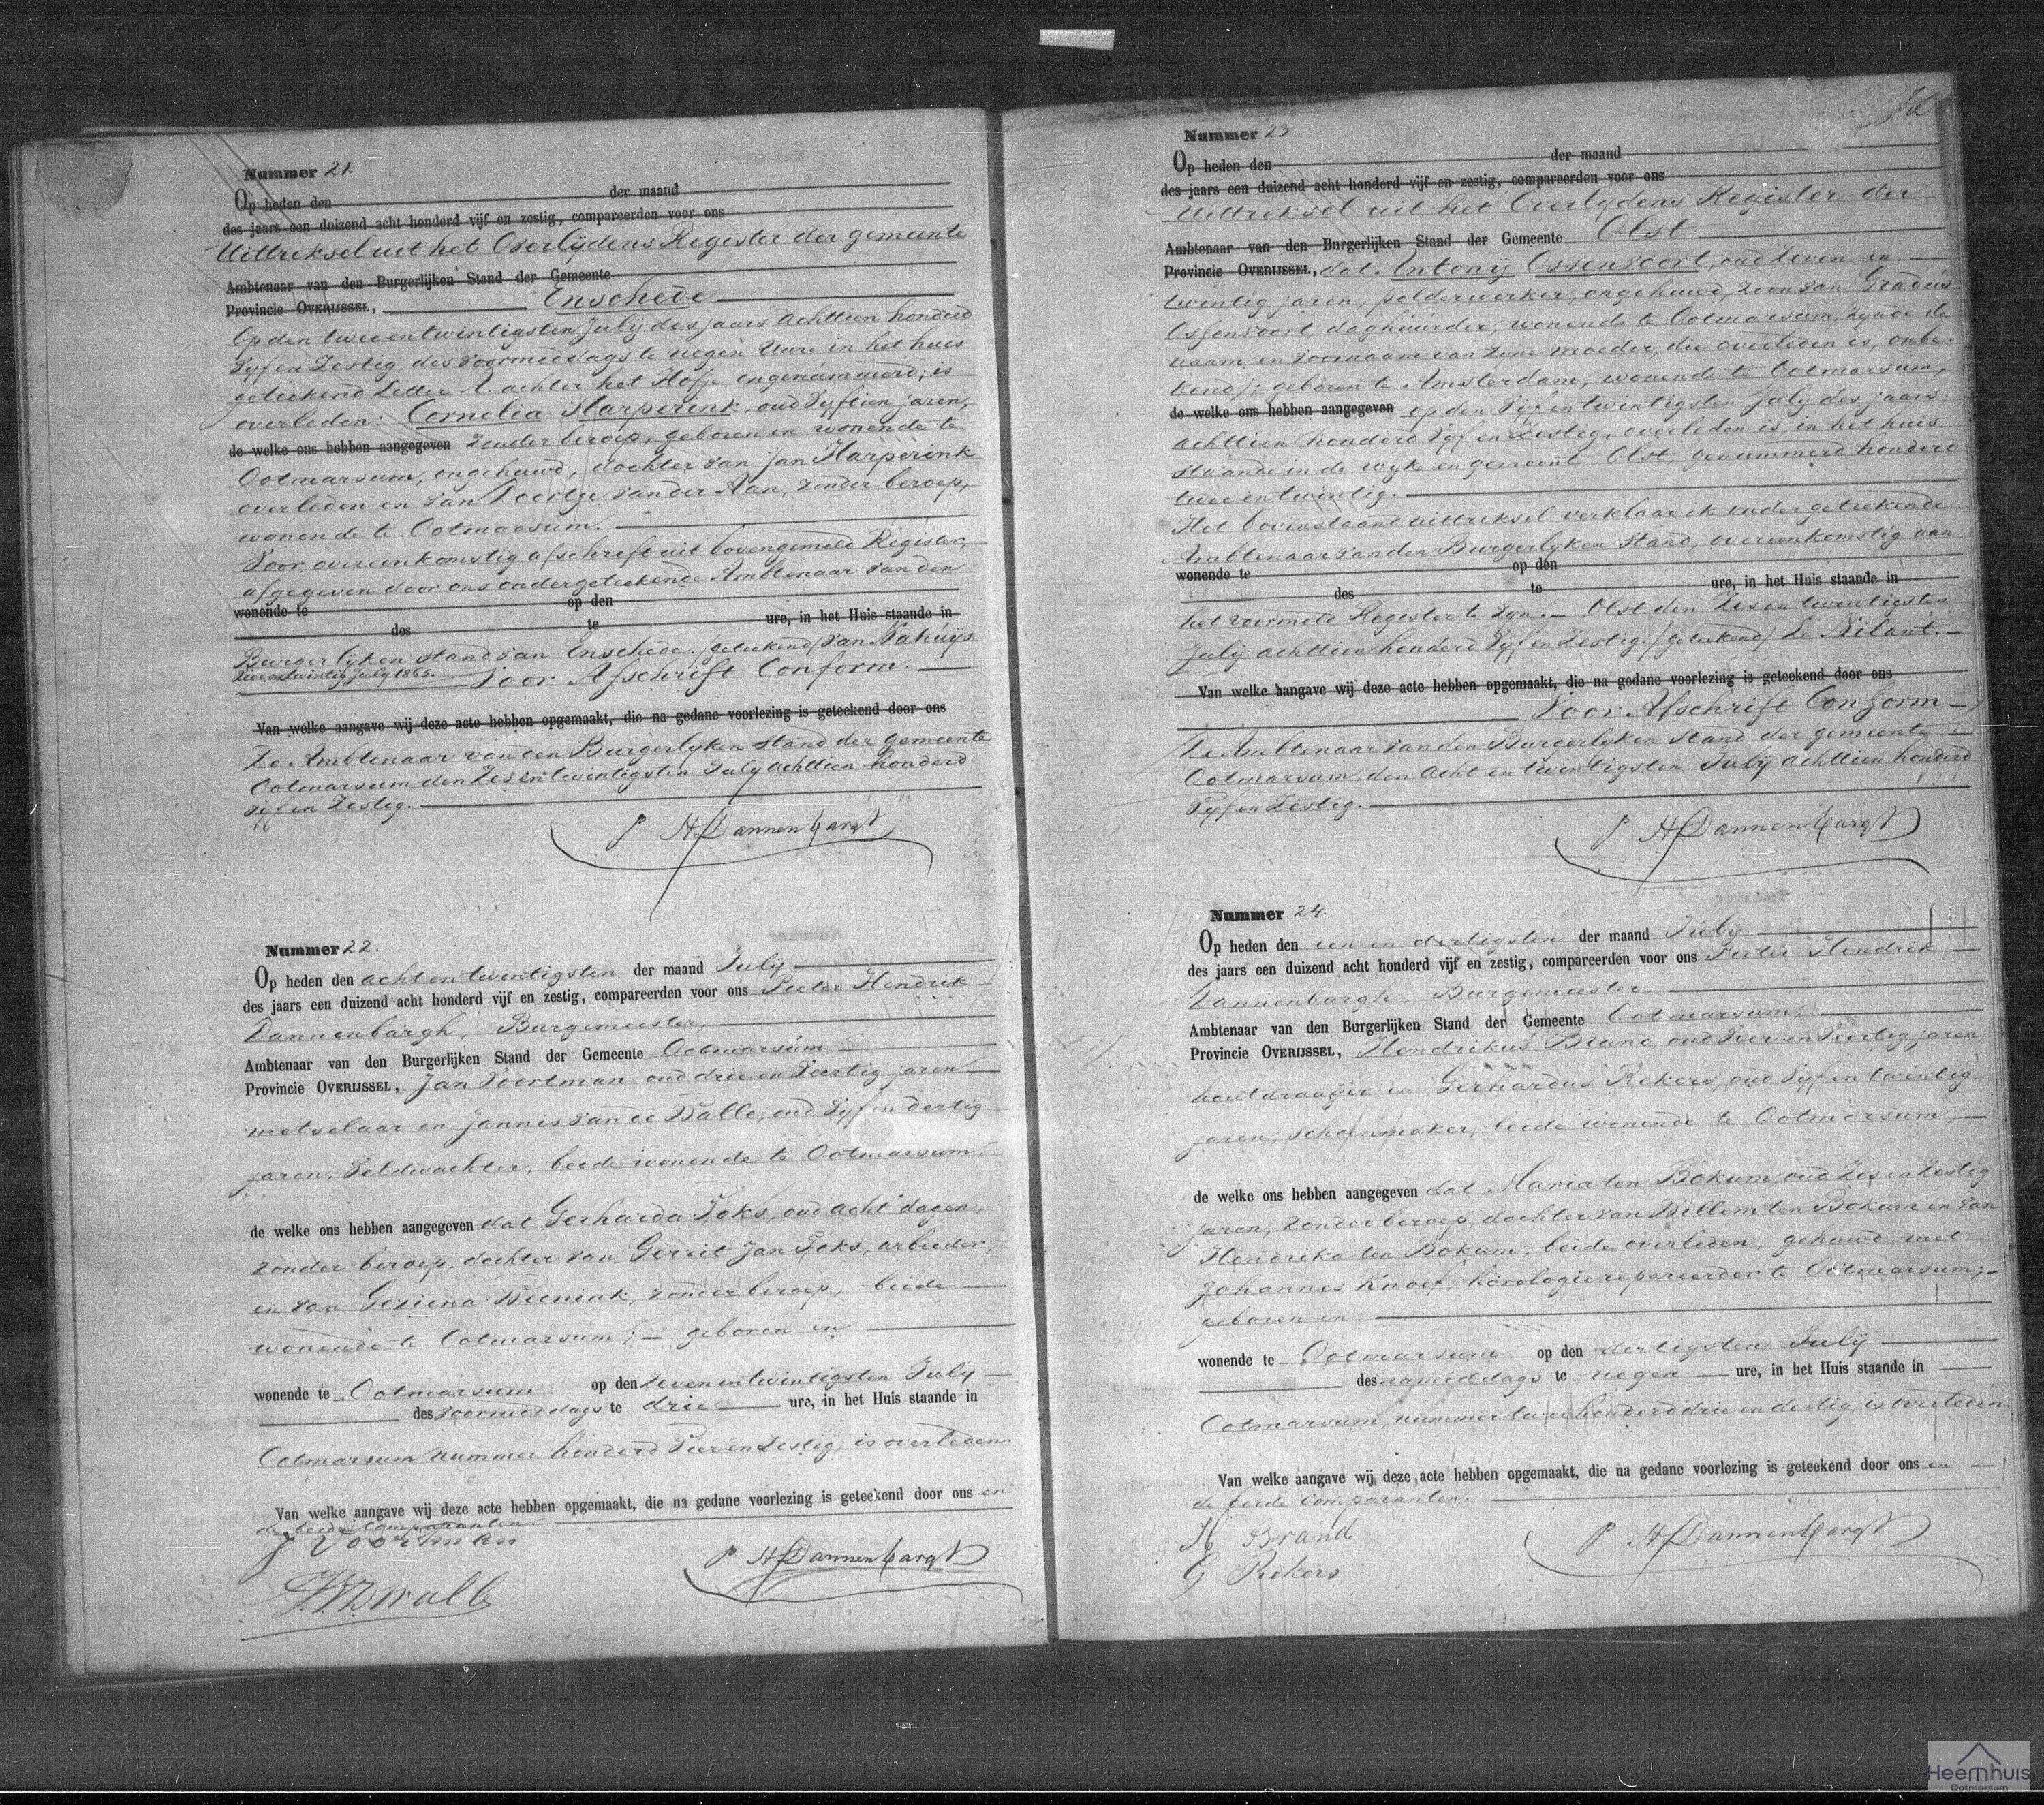 Nummer 21.
Op heden den der maand
des jaars een duizend acht honderd vijf en zestig, compareerden voor ons
Uittreksel uit het Overlijdens Register der gemeente
Ambtenaar van den Burgerlijken Stand der Gemeente
Provincie OVERIJSSEL, Enschede
Op den twee en twintigsten July des jaars achttien honderd
Vyf en Zestig, des voormiddags te negen Ure in het huis
geteekend Letter A. achter het Hofje ongenummerd; is
overleden: Cornelia Harperink, oud Vyftien jaren,
de welke ons hebben aangegeven zonder beroep, geboren en wonende te
Ootmarsum, ongehuwd, dochter van Jan Harperink
overleden en van Geertje van der Aan, zonder beroep,
wonende te Ootmarsum.
Voor overeenkomstig afschrift uit bovengemeld Register,
afgegeven door ons ondergeteekende Ambtenaar van den
wonende te op den
des te ure, in het Huis staande in
Burgerlyken stand van Enschede. /geteekend/ van Pahuys
Vier en twintig July 1865. Voor Afschrift Conform.
Van welke aangave wij deze acte hebben opgemaakt, die na gedane voorlezing is geteekend door ons
De Ambtenaar van den Burgerlyken stand der gemeente
Ootmarsum den Zes en twintigsten July achttien honderd
Vyf en Zestig.
P H Dannenbargh
Nummer 22.
Op heden den acht en twintigsten der maand July
des jaars een duizend acht honderd vijf en zestig, compareerden voor ons Pieter Hendrik
Dannenbargh, Burgemeester,
Ambtenaar van den Burgerlijken Stand der Gemeente Ootmarsum
Provincie OVERIJSSEL, Jan Voortman oud drie en Veertig jaren
metselaar en Jannis van de Walle, oud Vyf en dertig
jaren, Veldwachter, beide wonende te Ootmarsum,
de welke ons hebben aangegeven dat Gerharda Foks, oud acht dagen,
zonder beroep, dochter van Gerrit Jan Foks, arbeider,
en van Geziena Weenink, zonder beroep, beide
wonende te Ootmarsum; geboren en
wonende te Ootmarsum op den zeven en twintigsten July
des voormiddags te drie ure, in het Huis staande in
Ootmarsum nummer honderd Vier en Zestig, is overleden
Van welke aangave wij deze acte hebben opgemaakt, die na gedane voorlezing is geteekend door ons en
de beide Comparanten.
J Voortman
P H Dannenbargh
J. V. D. Walle
Nummer 23
Op heden den der maand
des jaars een duizend acht honderd vijf en zestig, compareerden voor ons
Uittreksel uit het Overlydens Register der
Ambtenaar van den Burgerlijken Stand der Gemeente Olst
Provincie OVERIJSSEL, dat Antonij Ossenvoort, oud Zeven en
twintig jaren, polderwerker, ongehuwd, zoon van Gradus
Ossenvoort, daghuurder, wonende te Ootmarsum, Zynde de
naam en voornaam van Zyne moeder, die overleden is, onbe-
kend/; geboren te Amsterdam, wonende te Ootmarsum,
de welke ons hebben aangegeven op den Vyf en twintigsten July des jaars
achttien honderd Vyf en Zestig, overleden is, in het huis
staande in de wyke en gemeente Olst, genummerd honderd
twee en twintig.
Het bovenstaand uittreksel verklaar ik ondergeteekende
Ambtenaar van den Burgerlyken Stand, overeenkomstig aan
wonende te op den
des te ure, in het Huis staande in
het voormeld Register te Zyn. Olst den Zes en twintigsten
July achttien honderd Vyf en Zestig. /geteekend/ L. Nilant.
Van welke aangave wij deze acte hebben opgemaakt, die na gedane voorlezing is geteekend door ons
Voor Afschrift Conform
De Ambtenaar van den Burgerlyken Stand der gemeente
Ootmarsum, den acht en twintigsten July achttien honderd
Vyf en Zestig.
P H Dannenbargh
Nummer 24.
Op heden den een en dertigsten der maand July
des jaars een duizend acht honderd vijf en zestig, compareerden voor ons Pieter Hendrik
Dannenbargh Burgemeester,
Ambtenaar van den Burgerlijken Stand der Gemeente Ootmarsum,
Provincie OVERIJSSEL, Hendrikus Brand, oud Vier en Veertig jaren
houtdraayer en Gerhardus Rekers, oud Vyf en twintig
jaren, schoenmaker, beide wonende te Ootmarsum,
de welke ons hebben aangegeven dat Maria ten Bokum, oud Zes en Zestig
jaren, zonder beroep, dochter van Willem ten Bokum en van
Hendrika ten Bokum, beide overleden, gehuwd met
Johannes Knoef, horologiereparerder te Ootmarsum;
geboren en
wonende te Ootmarsum op den dertigsten July
des namiddags te negen ure, in het Huis staande in
Ootmarsum, nummer twee honderd drie en dertig, is overleden
Van welke aangave wij deze acte hebben opgemaakt, die na gedane voorlezing is geteekend door ons en
de beide Comparanten.
H Brand
P H Dannenbargh
G Rekers
Heemhuis
Ootmarsum